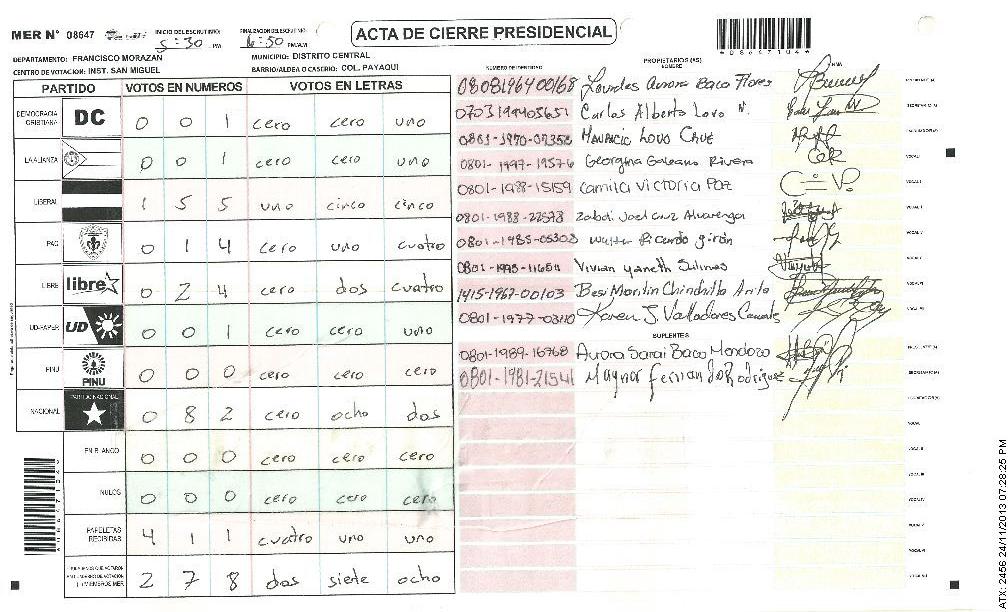 MER N° 08647
INICIO DEL ESCRUTINIO:
5:30 P.M.
FINALIZACION ESCRUTINIO:
6:50 P.M./A.M.
ACTA DE CIERRE PRESIDENCIAL
DEPARTAMENTO: FRANCISCO MORAZAN
MUNICIPIO: DISTRITO CENTRAL
CENTRO DE VOTACION: INST. SAN MIGUEL
BARRIO/ALDEA O CASERIO: COL. PAYAQUI
PARTIDO VOTOS EN NUMEROS VOTOS EN LETRAS
DEMOCRACIA CRISTIANA DC 0 0 1 cero cero uno
LA ALIANZA 0 0 1 cero cero uno
LIBERAL 1 5 5 uno cinco cinco
PAC 0 1 4 cero uno cuatro
LIBRE libre 0 2 4 cero dos cuatro
UD-FAPER UD 0 0 1 cero cero uno
PINU PINU 0 0 0 cero cero cero
NACIONAL PARTIDO NACIONAL 0 8 2 cero ocho dos
EN BLANCO 0 0 0 cero cero cero
NULOS 0 0 0 cero cero cero
PAPELETAS RECIBIDAS 4 1 1 cuatro uno uno
2 7 8 dos siete ocho
NUMERO DE IDENTIDAD
PROPIETARIOS (AS)
NOMBRE
FIRMA
0808196400168 Lourdes Aurora Baco Flores
0703199405651 Carlos Alberto Lovo
0801-1970-07358 Mauricio Lovo Cruz
0801-1997-19576 Georgina Galeano Rivera
0801-1988-15159 Camila Victoria Paz
0801-1988-22573 Alvarenga
0801-1985-05308 Walter Ricardo Girón
0801-1995-11654 Vivian Yaneth Salinas
1415-1967-00103
0801-1977-03110 Karen J. Valladares
SUPLENTES
0801-1989-16768 Aurora Sarai Baco Mendoza
0801-1981-21541 Maynor Fernando Rodriguez
ATX: 2456 24/11/2013 07:28:25 PM